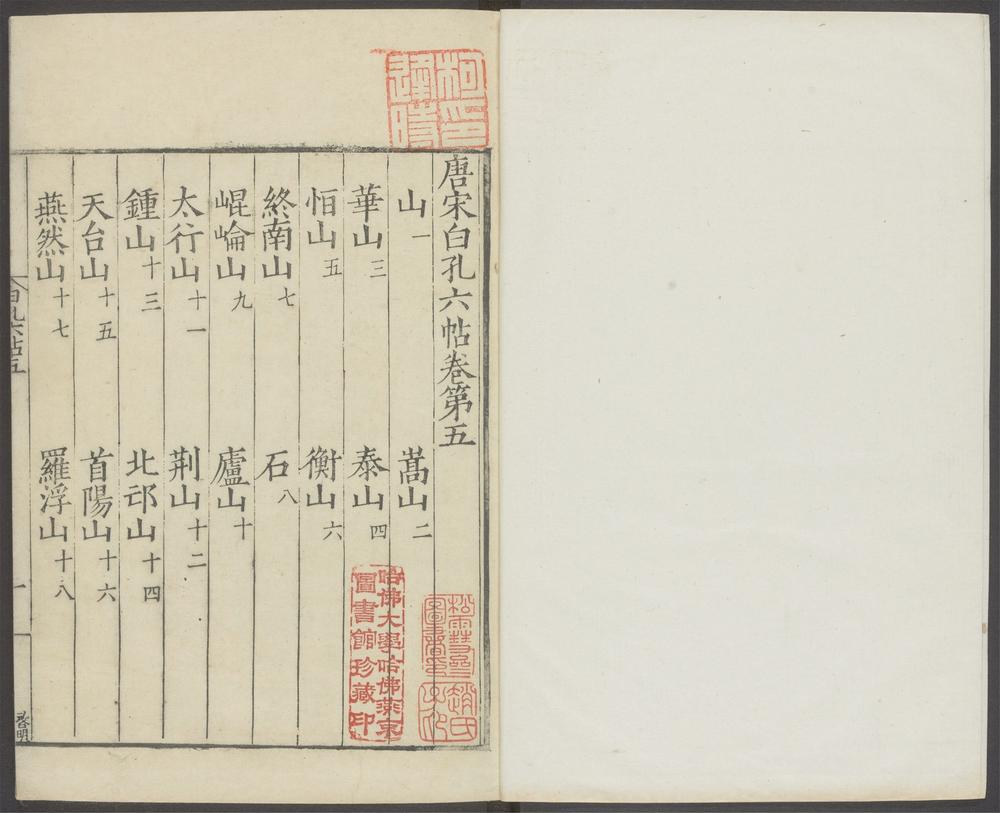 唐宋白孔六帖卷第五
山一 嵩山二
華山三 泰山四
恒山五 衡山六
終南山七 石八
崐崘山九 廬山十
太行山十一 荆山十二
鍾山十三 北邙山十四
天台山十五 首陽山十六
燕然山十七 羅浮山十八
白孔六帖五
一
啓明
柯印逢時
哈佛大學哈佛燕京
圖書館珍藏印
趙氏